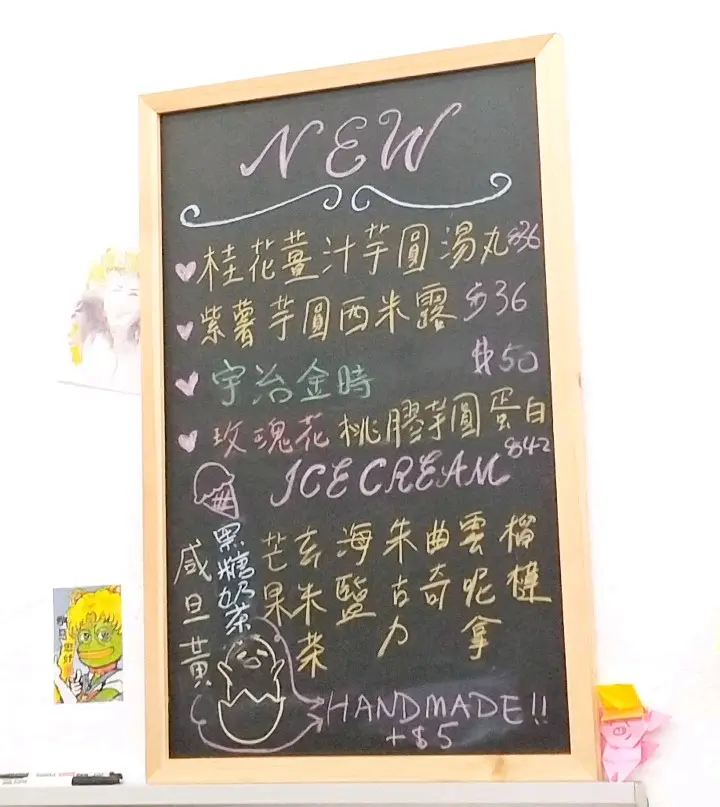 NEW
桂花薑汁芋圓湯丸 $36
紫薯芋圓西米露 $36
宇治金時 $50
玫瑰花桃膠芋圓蛋白 $42
ICE CREAM
榴槤
雲呢拿
曲奇
朱古力
海鹽
玄米茶
芒果
黑糖奶茶
咸旦黃
HANDMADE!!
+$5